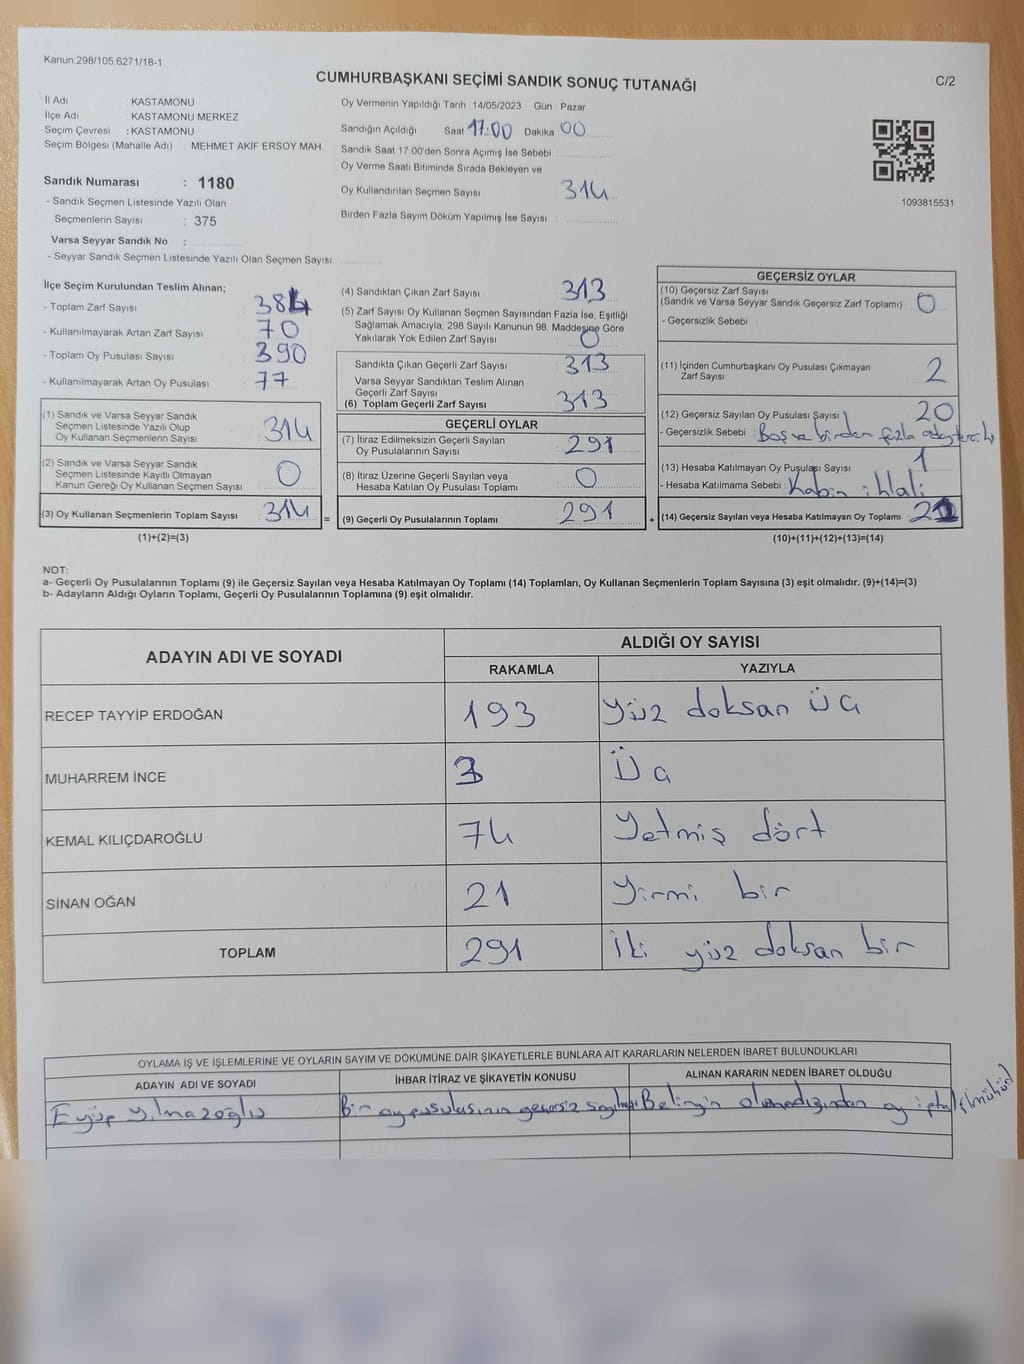 Kanun.298/105,6271/18-1
CUMHURBAŞKANI SEÇİMİ SANDIK SONUÇ TUTANAĞI
C/2
İl Adı : KASTAMONU
İlçe Adı : KASTAMONU MERKEZ
Seçim Çevresi : KASTAMONU
Seçim Bölgesi (Mahalle Adı) : MEHMET AKİF ERSOY MAH
Oy Vermenin Yapıldığı Tarih : 14/05/2023 Gün : Pazar
Sandığın Açıldığı Saat 17:00 Dakika 00
Sandık Saat 17:00'den Sonra Açımış İse Sebebi :
Oy Verme Saati Bitiminde Sırada Bekleyen ve
Oy Kullandırılan Seçmen Sayısı : 314
Birden Fazla Sayım Döküm Yapılmış İse Sayısı :
1093815531
Sandık Numarası : 1180
- Sandık Seçmen Listesinde Yazılı Olan
Seçmenlerin Sayısı : 375
Varsa Seyyar Sandık No :
- Seyyar Sandık Seçmen Listesinde Yazılı Olan Seçmen Sayısı :
İlçe Seçim Kurulundan Teslim Alınan;
- Toplam Zarf Sayısı : 384
- Kullanılmayarak Artan Zarf Sayısı : 70
- Toplam Oy Pusulası Sayısı : 390
- Kullanılmayarak Artan Oy Pusulası : 77
(1) Sandık ve Varsa Seyyar Sandık
Seçmen Listesinde Yazılı Olup
Oy Kullanan Seçmenlerin Sayısı : 314
(2) Sandık ve Varsa Seyyar Sandık
Seçmen Listesinde Kayıtlı Olmayan
Kanun Gereği Oy Kullanan Seçmen Sayısı : 0
(3) Oy Kullanan Seçmenlerin Toplam Sayısı : 314 =
(1)+(2)=(3)
(4) Sandıktan Çıkan Zarf Sayısı : 313
(5) Zarf Sayısı Oy Kullanan Seçmen Sayısından Fazla İse, Eşitliği
Sağlamak Amacıyla, 298 Sayılı Kanunun 98. Maddesine Göre
Yakılarak Yok Edilen Zarf Sayısı : 0
Sandıkta Çıkan Geçerli Zarf Sayısı : 313
Varsa Seyyar Sandıktan Teslim Alınan
Geçerli Zarf Sayısı
(6) Toplam Geçerli Zarf Sayısı : 313
GEÇERLİ OYLAR
(7) İtiraz Edilmeksizin Geçerli Sayılan
Oy Pusulalarının Sayısı : 291
(8) İtiraz Üzerine Geçerli Sayılan veya
Hesaba Katılan Oy Pusulası Toplamı : 0
(9) Geçerli Oy Pusulalarının Toplamı : 291 +
GEÇERSİZ OYLAR
(10) Geçersiz Zarf Sayısı
(Sandık ve Varsa Seyyar Sandık Geçersiz Zarf Toplamı) : 0
- Geçersizlik Sebebi :
(11) İçinden Cumhurbaşkanı Oy Pusulası Çıkmayan
Zarf Sayısı : 2
(12) Geçersiz Sayılan Oy Pusulası Sayısı : 20
- Geçersizlik Sebebi : Boş ve birden fazla
(13) Hesaba Katılmayan Oy Pusulası Sayısı : 1
- Hesaba Katılmama Sebebi : Kabin ihlali
(14) Geçersiz Sayılan veya Hesaba Katılmayan Oy Toplamı :
(10)+(11)+(12)+(13)=(14)
NOT:
a- Geçerli Oy Pusulalarının Toplamı (9) ile Geçersiz Sayılan veya Hesaba Katılmayan Oy Toplamı (14) Toplamları, Oy Kullanan Seçmenlerin Toplam Sayısına (3) eşit olmalıdır. (9)+(14)=(3)
b- Adayların Aldığı Oyların Toplamı, Geçerli Oy Pusulalarının Toplamına (9) eşit olmalıdır.
ADAYIN ADI VE SOYADI
ALDIĞI OY SAYISI
RAKAMLA YAZIYLA
RECEP TAYYİP ERDOĞAN 193 Yüz doksan üç
MUHARREM İNCE 3 Üç
KEMAL KILIÇDAROĞLU 74 Yetmiş dört
SİNAN OĞAN 21 Yirmi bir
TOPLAM 291 İki yüz doksan bir
OYLAMA İŞ VE İŞLEMLERİNE VE OYLARIN SAYIM VE DÖKÜMÜNE DAİR ŞİKAYETLERLE BUNLARA AİT KARARLARIN NELERDEN İBARET BULUNDUKLARI
ADAYIN ADI VE SOYADI İHBAR İTİRAZ VE ŞİKAYETİN KONUSU ALINAN KARARIN NEDEN İBARET OLDUĞU
Eyüp Yılmazoğlu Bir oy pusulasının geçersiz sayılması olmadığından oy iptal